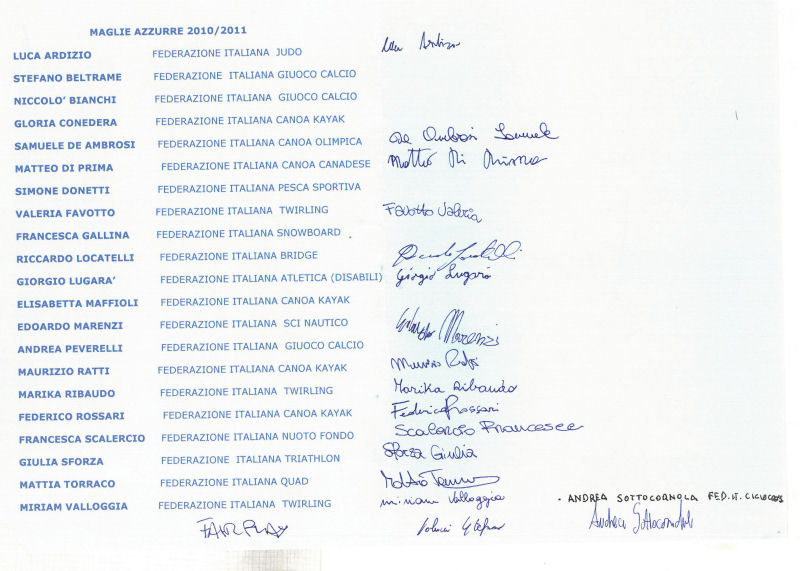 MAGLIE AZZURRE 2010/2011
LUCA ARDIZIO FEDERAZIONE ITALIANA JUDO Luca Ardizio
STEFANO BELTRAME FEDERAZIONE ITALIANA GIUOCO CALCIO
NICCOLO' BIANCHI FEDERAZIONE ITALIANA GIUOCO CALCIO
GLORIA CONEDERA FEDERAZIONE ITALIANA CANOA KAYAK
SAMUELE DE AMBROSI FEDERAZIONE ITALIANA CANOA OLIMPICA De Ambrosi Samuele
MATTEO DI PRIMA FEDERAZIONE ITALIANA CANOA CANADESE Matteo Di Prima
SIMONE DONETTI FEDERAZIONE ITALIANA PESCA SPORTIVA
VALERIA FAVOTTO FEDERAZIONE ITALIANA TWIRLING Favotto Valeria
FRANCESCA GALLINA FEDERAZIONE ITALIANA SNOWBOARD
RICCARDO LOCATELLI FEDERAZIONE ITALIANA BRIDGE
GIORGIO LUGARA' FEDERAZIONE ITALIANA ATLETICA (DISABILI) Giorgio Lugarà
ELISABETTA MAFFIOLI FEDERAZIONE ITALIANA CANOA KAYAK
EDOARDO MARENZI FEDERAZIONE ITALIANA SCI NAUTICO Edoardo Marenzi
ANDREA PEVERELLI FEDERAZIONE ITALIANA GIUOCO CALCIO
MAURIZIO RATTI FEDERAZIONE ITALIANA CANOA KAYAK
MARIKA RIBAUDO FEDERAZIONE ITALIANA TWIRLING Marika Ribaudo
FEDERICO ROSSARI FEDERAZIONE ITALIANA CANOA KAYAK Federico Rossari
FRANCESCA SCALERCIO FEDERAZIONE ITALIANA NUOTO FONDO Scalercio Francesca
GIULIA SFORZA FEDERAZIONE ITALIANA TRIATHLON Sforza Giulia
MATTIA TORRACO FEDERAZIONE ITALIANA QUAD Mattia
MIRIAM VALLOGGIA FEDERAZIONE ITALIANA TWIRLING miriam Valloggia - ANDREA SOTTOCORNOLA FED. IT. CICLOCROSS
FAIR PLAY Andrea Sottocornola